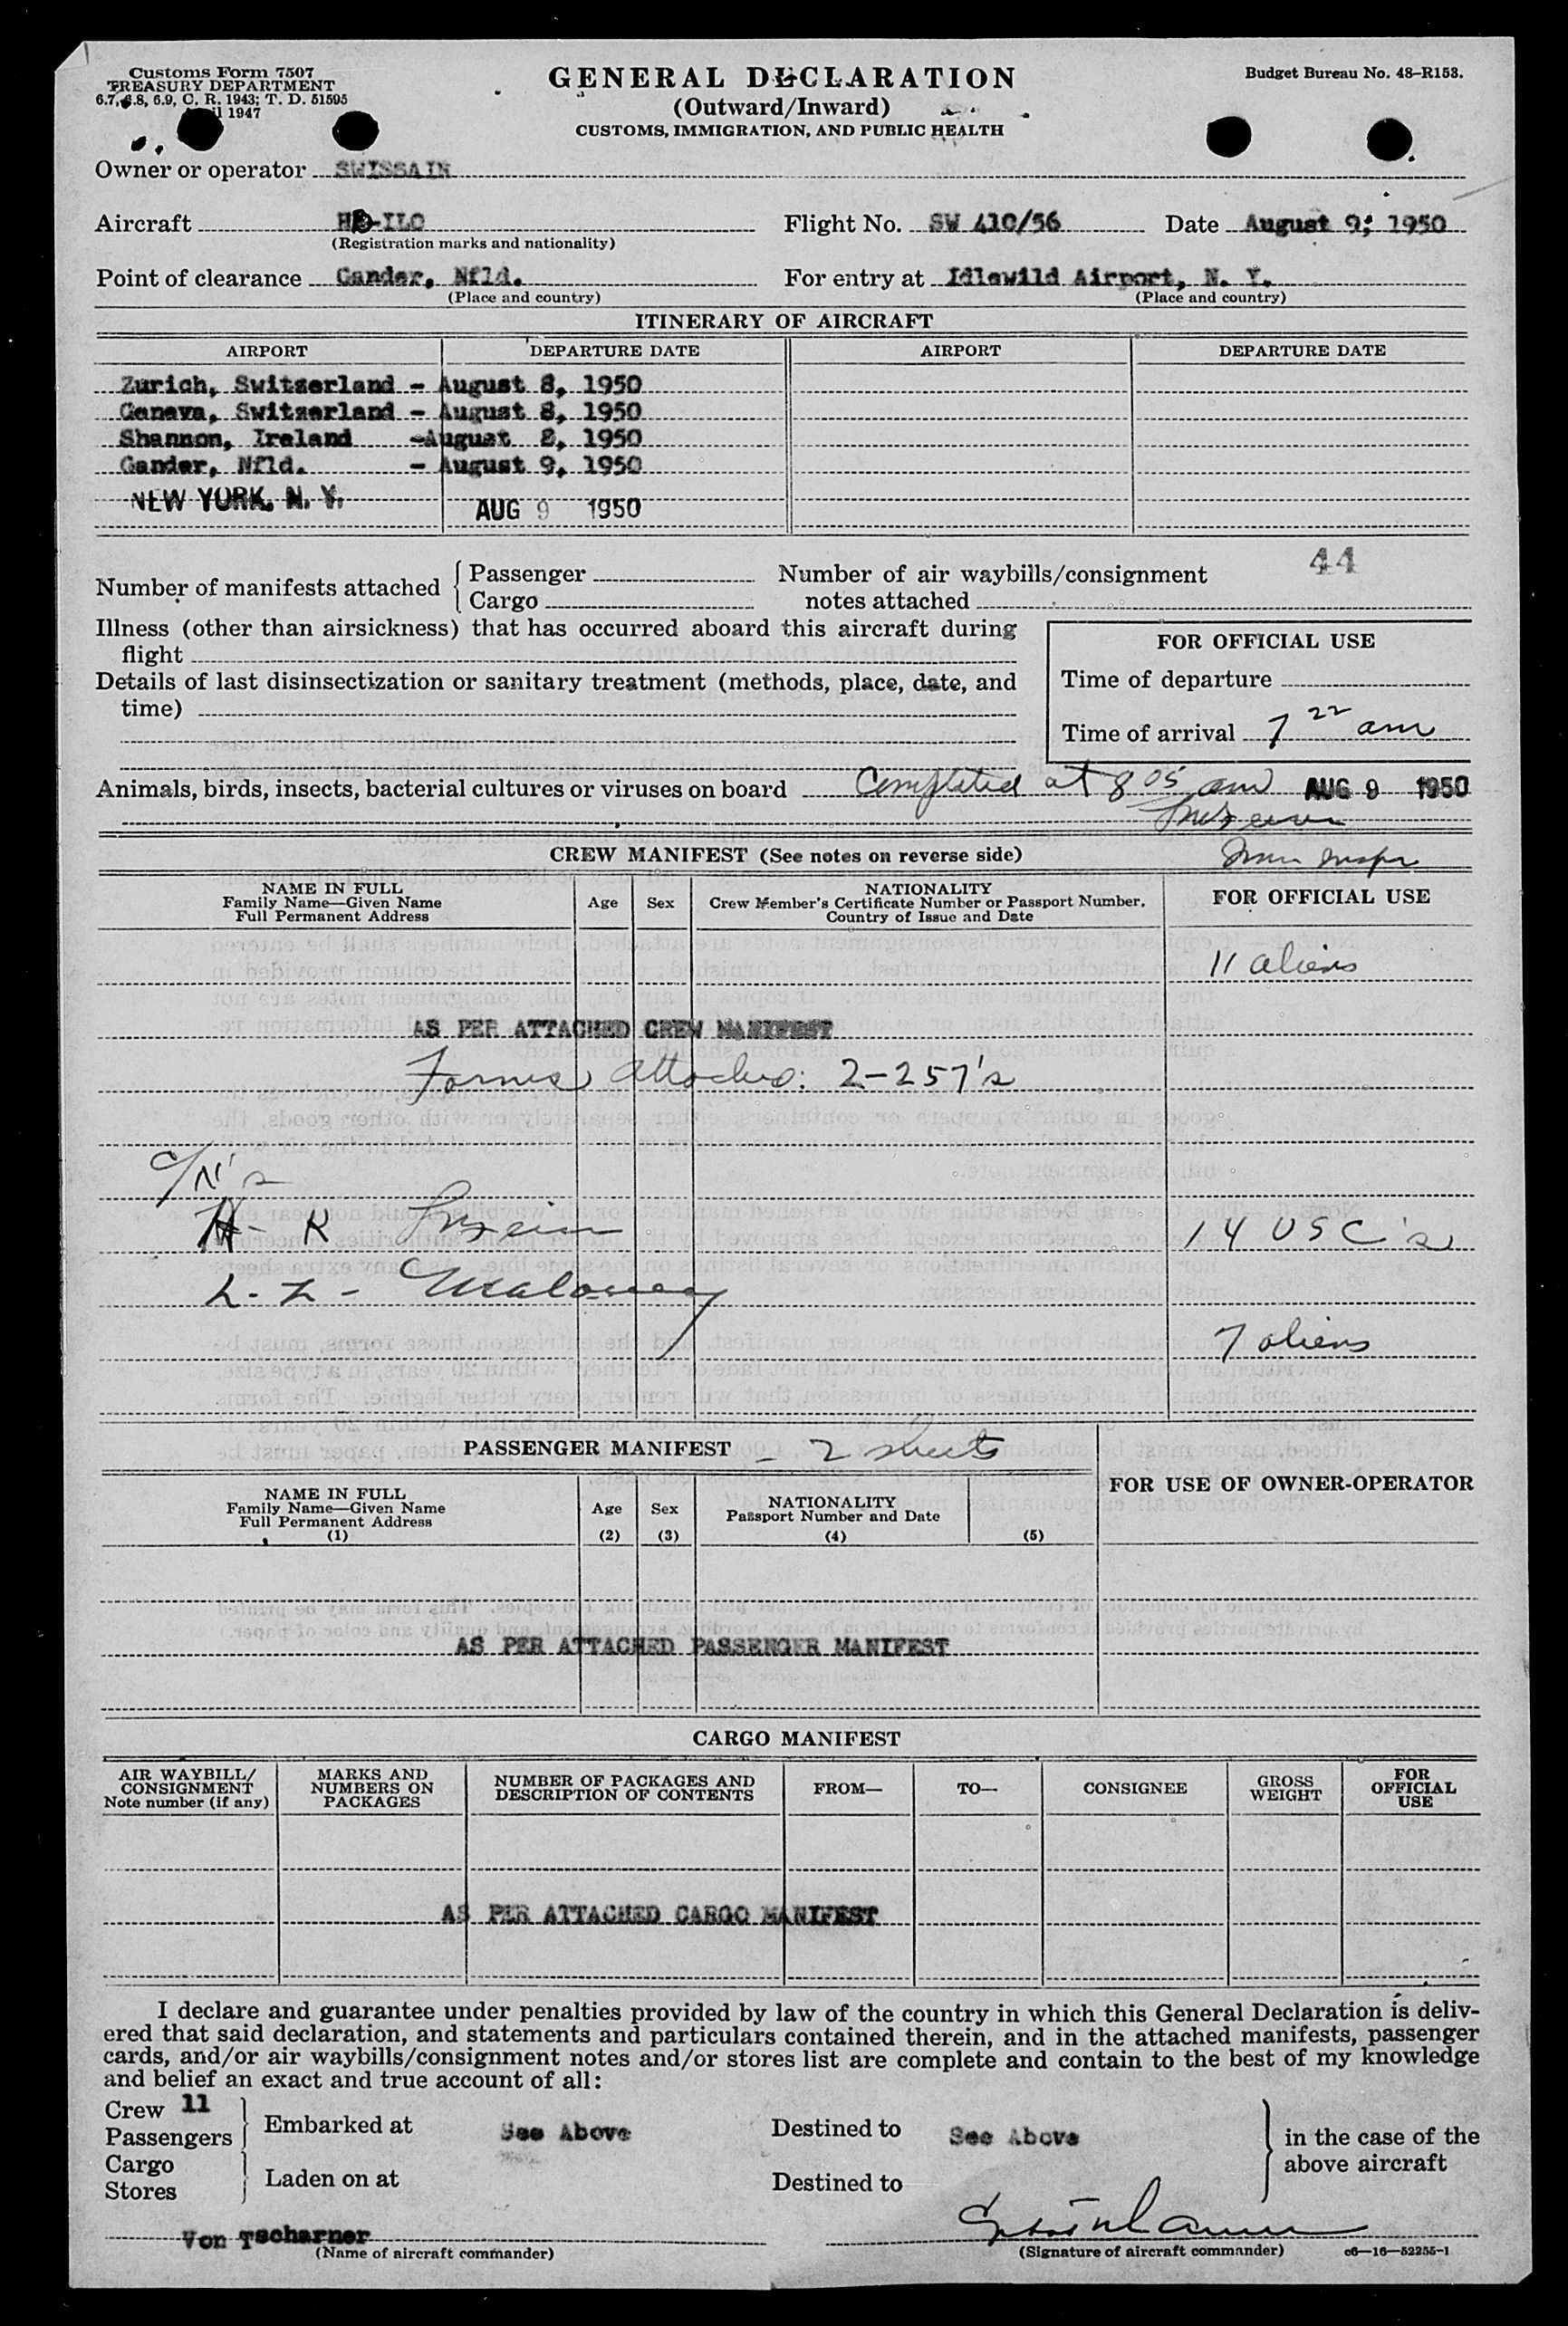 Customs Form 7507
TREASURY DEPARTMENT
6.7, 6.8, 6.9, C. R. 1943; T. D. 51595
1947
GENERAL DECLARATION
(Outward/Inward)
CUSTOMS, IMMIGRATION, AND PUBLIC HEALTH
Budget Bureau No. 48-R153.
Owner or operator SWISSAIR
Aircraft HB-ILO Flight No. SW 410/56 Date August 9, 1950
(Registration marks and nationality)
Point of clearance Gander, Nfld. For entry at Idlewild Airport, N. Y.
(Place and country) (Place and country)
ITINERARY OF AIRCRAFT
AIRPORT DEPARTURE DATE AIRPORT DEPARTURE DATE
Zurich, Switzerland - August 8, 1950
Geneva, Switzerland - August 8, 1950
Shannon, Ireland -August 8, 1950
Gander, Nfld. - August 9, 1950
NEW YORK, N. Y. AUG 9 1950
44
Number of manifests attached { Passenger Number of air waybills/consignment
Cargo notes attached
Illness (other than airsickness) that has occurred aboard this aircraft during
flight
FOR OFFICIAL USE
Details of last disinsectization or sanitary treatment (methods, place, date, and
time)
Time of departure
Time of arrival 7 22 am
Animals, birds, insects, bacterial cultures or viruses on board Completed at 8 05 am AUG 9 1950
CREW MANIFEST (See notes on reverse side)
NAME IN FULL
Family Name—Given Name
Full Permanent Address
Age Sex
NATIONALITY
Crew Member's Certificate Number or Passport Number,
Country of Issue and Date
FOR OFFICIAL USE
11 aliens
AS PER ATTACHED CREW MANIFEST
Forms attached: 2-257's
14 USC's
Maloney
7 aliens
PASSENGER MANIFEST - 2 sheets
FOR USE OF OWNER-OPERATOR
NAME IN FULL
Family Name—Given Name
Full Permanent Address
(1)
Age
(2)
Sex
(3)
NATIONALITY
Passport Number and Date
(4)
(5)
AS PER ATTACHED PASSENGER MANIFEST
CARGO MANIFEST
AIR WAYBILL/
CONSIGNMENT
Note number (if any)
MARKS AND
NUMBERS ON
PACKAGES
NUMBER OF PACKAGES AND
DESCRIPTION OF CONTENTS
FROM— TO— CONSIGNEE
GROSS
WEIGHT
FOR
OFFICIAL
USE
AS PER ATTACHED CARGO MANIFEST
I declare and guarantee under penalties provided by law of the country in which this General Declaration is deliv-
ered that said declaration, and statements and particulars contained therein, and in the attached manifests, passenger
cards, and/or air waybills/consignment notes and/or stores list are complete and contain to the best of my knowledge
and belief an exact and true account of all:
Crew 11
Passengers } Embarked at See Above Destined to See Above
in the case of the
above aircraft
Cargo
Stores } Laden on at Destined to
Von Tscharner
(Name of aircraft commander) (Signature of aircraft commander) c6—16—52255-1